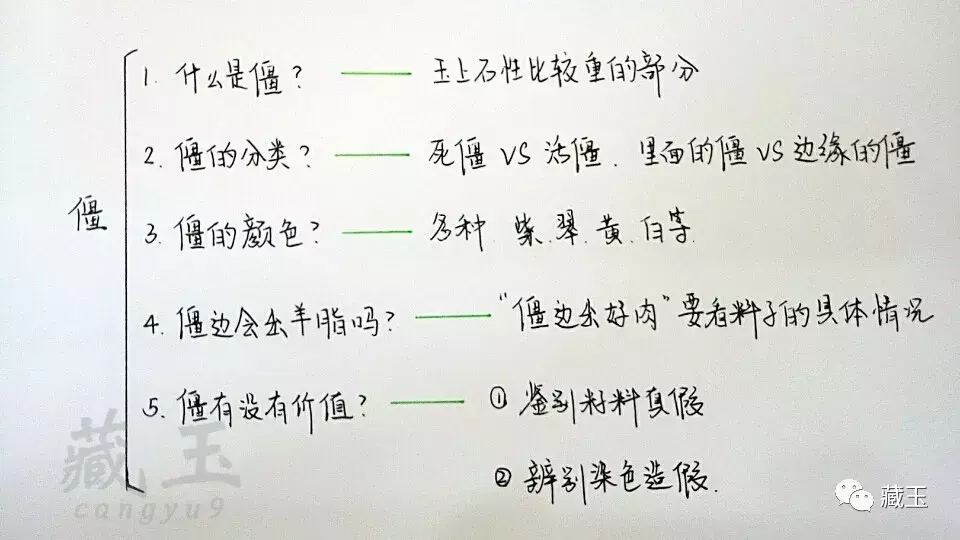 僵
1. 什么是僵? —— 玉上石性比较重的部分
2. 僵的分类? —— 死僵 VS 活僵. 里面的僵 VS 边缘的僵
3. 僵的颜色? —— 多种. 紫. 翠. 黄. 白等.
4. 僵边会出羊脂吗? —— "僵边出好肉"要看料子的具体情况
5. 僵有没有价值? —— ① 鉴别籽料真假
② 辨别染色造假.
藏玉
cangyu9
藏玉